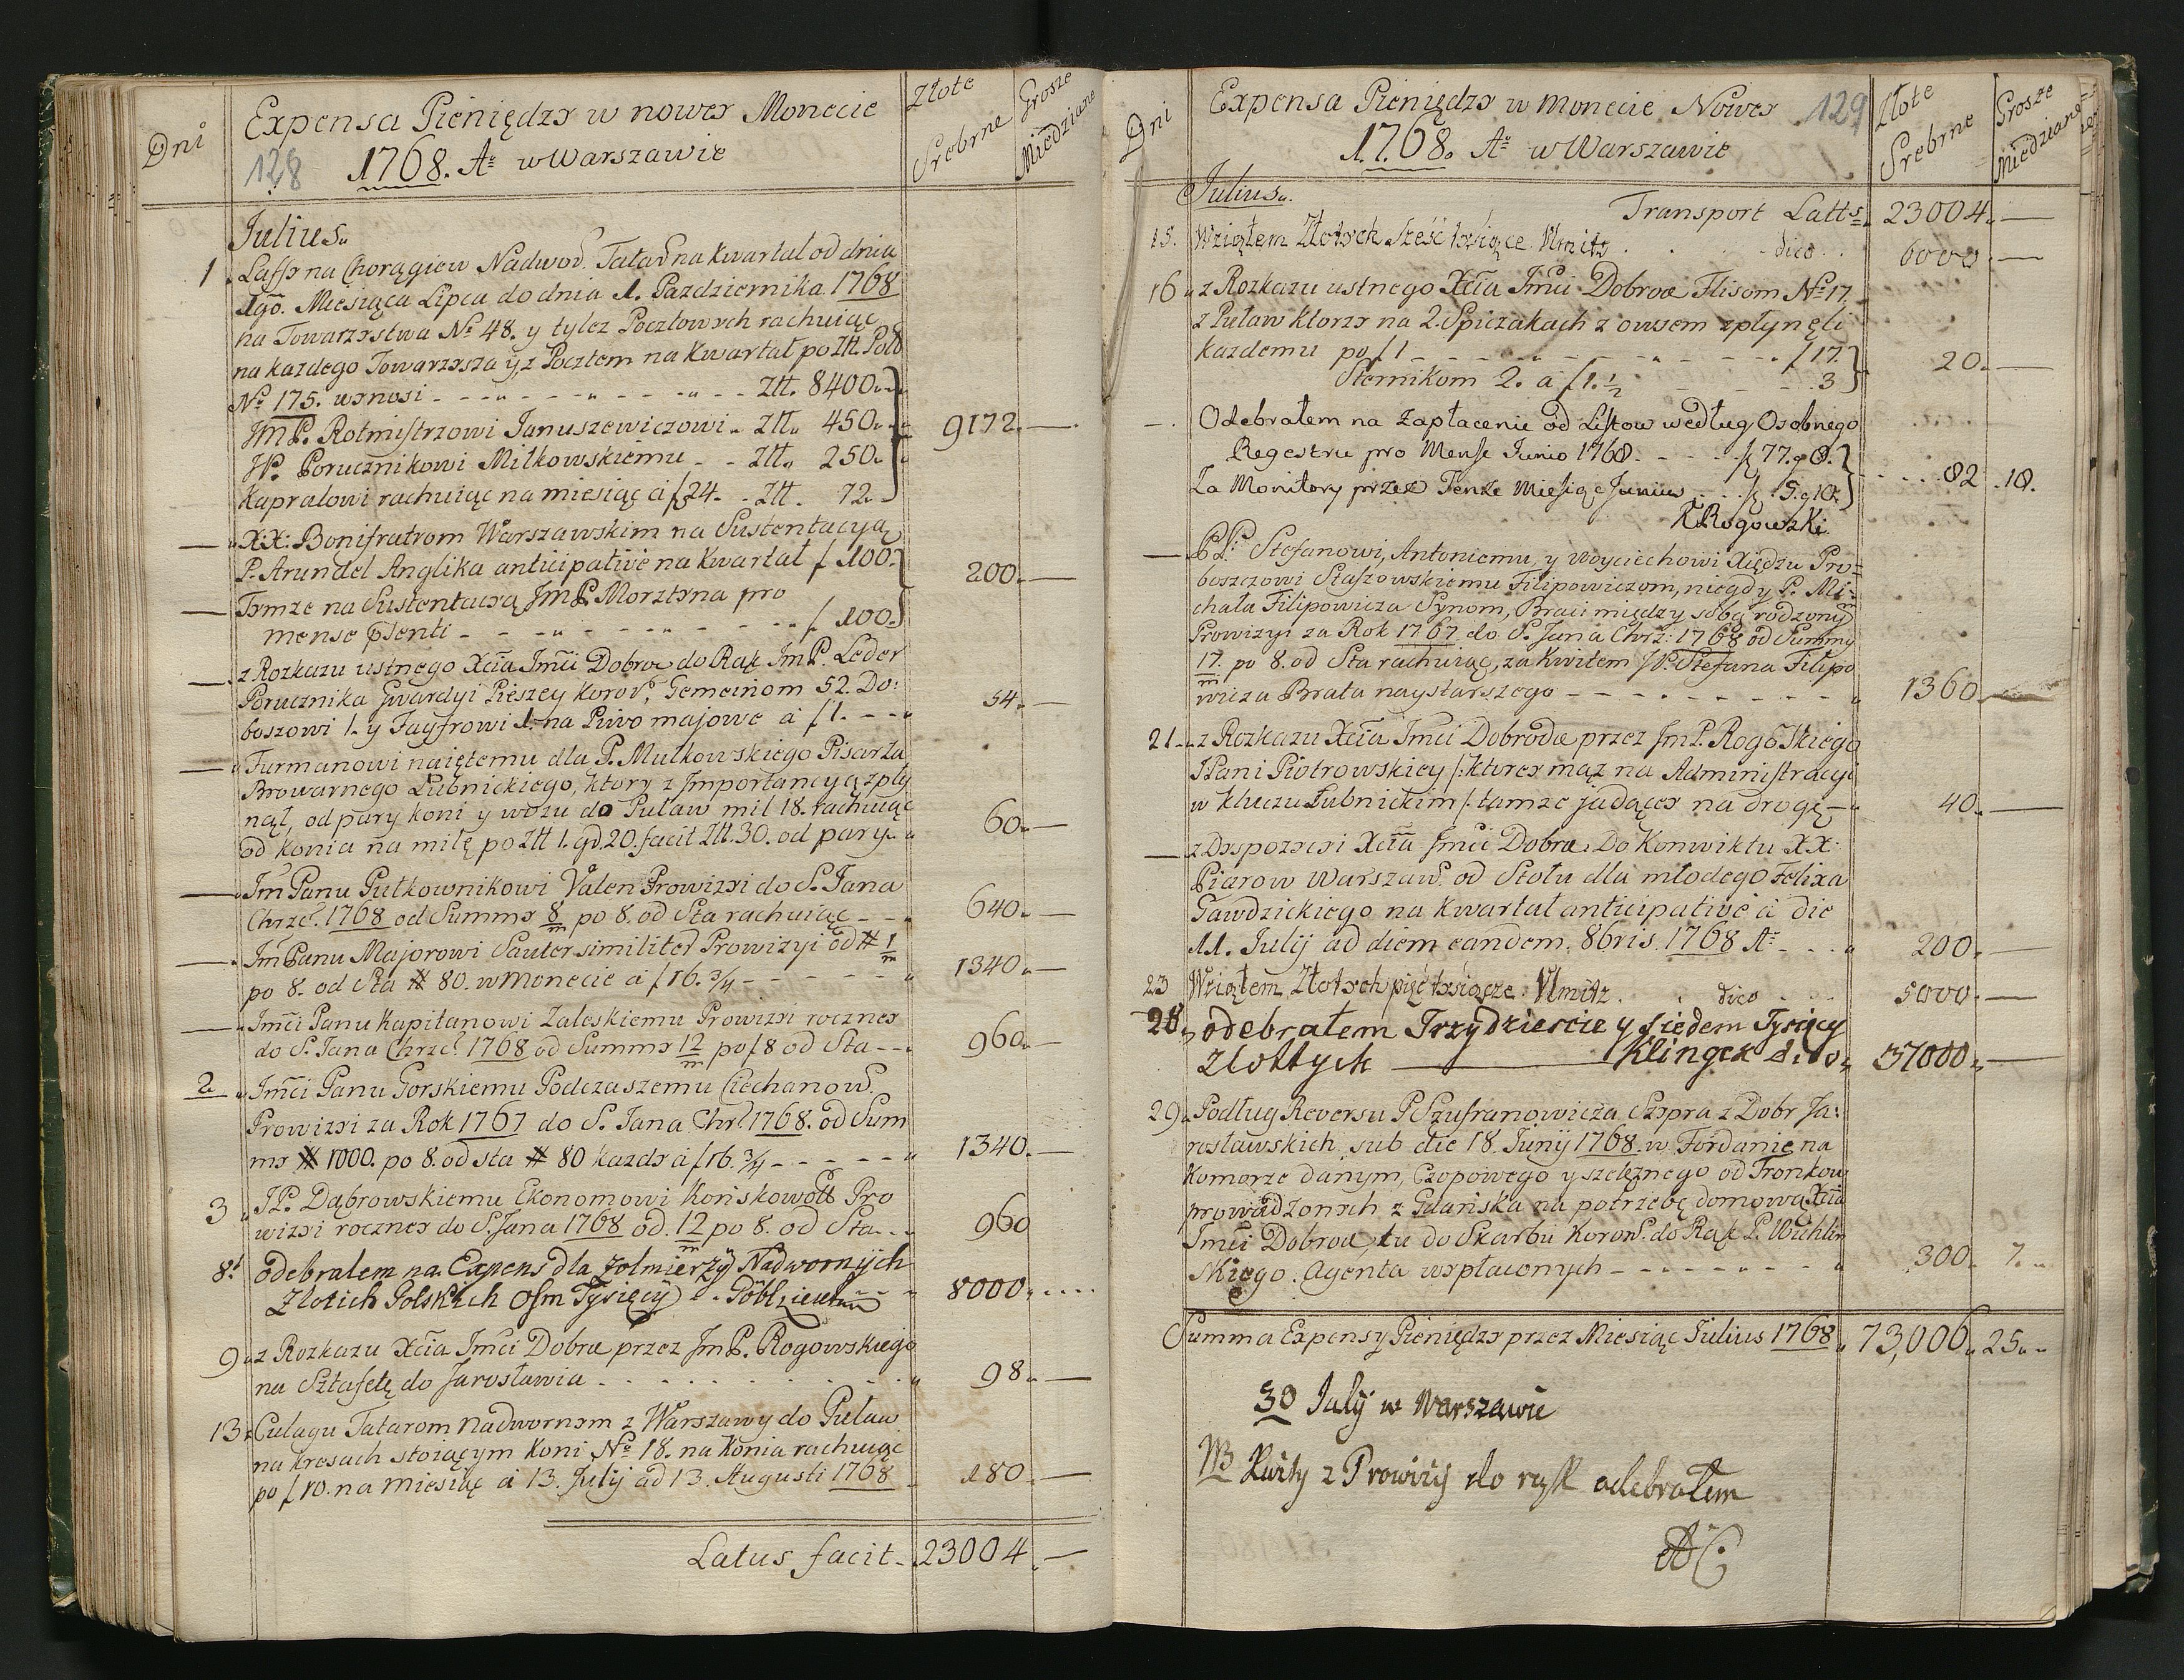 Dni
Expensa Pieniędzy w nowey Monecie
128 1768. Aº w Warszawie
Złote Srebrne
Grosze Miedziane
Julius.
1. Laffy na Chorągiew Nadwor. Tatar. na Kwartał od dnia
1go. Miesiąca Lipca do dnia 1. Pazdziernika 1768
na Towarzystwa Nº 48. y tylez Pocztowych rachuiąc
na kazdego Towarzysza y z Pocztem na Kwartał po Ztt. Pols
Nº 175. wynosi - - - Ztt. 8400.
JMP. Rotmistrzowi Januszewiczowi. Ztt. 450. 9172. —
JP. Porucznikowi Miłkowskiemu - - Ztt. 250.
Kapralowi rachuiąc na miesiąc a f 24. - Ztt. 72.
— XX: Bonifratrom Warszawskim na Sustentacyą
P. Arundel Anglika anticipative na Kwartał f 100. 200. —
— Tymze na Sustentacyą JmP. Morztyna pro
mense p̄senti - - - f 100.
— z Rozkazu ustnego Xcia Jmci Dobro do Rąk JmP. Leder
Porucznika Gwardyi Pieszey Koron. Gemeinom 52. Do:
boszowi 1. y Fayfrowi 1. na Piwo majowe a f 1. - - 54. —
— Furmanowi naiętemu dla P. Mutkowskiego Pisarza
Browarnego Łubnickiego, ktory z Importancyą zpły
nął, od pary koni y wozu do Puław mil 18. rachuiąc
od konia na milę po Ztt 1. gr 20. facit Ztt. 30. od pary. 60. —
— Jm Panu Pułkownikowi Valen Prowizyi do S. Jana
Chrzc. 1768 od Summy 8/m po 8. od Sta rachuiąc - - 640. —
— Jm Panu Majorowi Sauter similiter Prowizyi od # 1/m
po 8. od Sta # 80. w Monecie a f 16. 3/4 - - - 1340. —
— Jmci Panu Kapitanowi Zaleskiemu Prowizyi roczney
do S. Jana Chrzc. 1768 od Summy 12/m po f 8 od Sta - - 960. —
2. Jmci Panu Gorskiemu Podczaszemu Ciechanow.
Prowizyi za Rok 1767 do S. Jana Chr. 1768. od Sum
my # 1000. po 8. od sta # 80 kazdy a f 16. 3/4 - - - 1340. —
3. JP. Dąbrowskiemu Ekonomowi Konskowol Pro
wizyi roczney do S. Jana 1768 od. 12/m po 8. od Sta. - - 960
8. odebralem na Expens dla zolmierzy Nadwornijch
Zlotich Polskich osm Tysięcy - 8000. ....
9. z Rozkazu Xcia Jmci Dobro przez JmP. Rogowskiego
na Sztafetę do Jarosławia - - - 98. —
13. Culagu Tatarom nadwornym z Warszawy do Puław
na kresach stoiącym Koni Nº 18. na Konia rachuiąc
po f 10. na miesiąc a 13. Julij ad 13. Augusti 1768 180. —
Latus facit. 23004. —
Dni
Expensa Pieniędzy w monecie Nowey 129
1768. Aº w Warszawie
Złote Srebrne
Grosze Miedziane
Julius.
Transport Latts. 23004. —
15. Wziąłem Złotych sześć tysięce dico . . 6000. —
16. z Rozkazu ustnego Xcia Jmci Dobroa Flisom Nº 17.
z Puław ktorzy na 2. Spiczakach z owsem zpłynęli
kazdemu po f 1 - - - f 17. 20. —
Sternikom 2. a f 1. 1/2 - - - 3
—. Odebrałem na zapłacenie od Listow według Osobnego
Regestru pro Mense Junio 1768. - - - f 77. g 8.
Za Monitory przez Tenze Miesiąc Junius . . f 5. g 10. 82 .18.
K Rogowski
— PP. Stefanowi, Antoniemu, y Woyciechowi Xiędzu Pro=
boszczowi Staszowskiemu Filipowiczom, niegdy P. Mi=
chała Filipowicza Synom, Braci między sobą rodzonym
Prowizyi za Rok 1767 do S. Jana Chrz: 1768 od Summy
17/m. po 8. od Sta rachuiąc, za Kwitem JP. Stefana Filipo
wicza Brata naystarszego - - - 1360. —
21. z Rozkazu Xcia Jmci Dobrodo przez JmP. Rogoskiego
JPani Piotrowskiey /: ktorey mąz na Administracyi
w kluczu Łubnickim /: tamze jadącey na drogę - 40. —
— z Dyspozycyi Xcia Jmci Dobro. Do Konwiktu XX:
Piarow Warszaw. od Stołu dla młodego Felixa
Gawdzickiego na Kwartał anticipative a die
11. Julij ad diem eandem. 8bris 1768 Aº - - 200. —
23 Wziąłem Złotych pięć tysięcze . dico . . 5000. —
28. odebrałem Trzydziescie y siedem Tysięcy
Złottych — Klinger dico. 37000. —
29. Podług Reversu P Szufranowicza Szypra z Dobr Ja:
rosławskich sub die 18. Junij 1768. w Fordanie na
Komorze danym, Czopowego y szelęznego od Tronkow
prowadzonych z Gdańska na potrzebę domową Xcia
Jmci Dobroa, tu do Skarbu Koron. do Rąk P. Wichlin
skiego. Agenta wypłaconych - - - 300. 7.
Summa Expensy Pieniędzy przez Miesiąc Julius 1768. 73,006. 25.
30 July w Warszawie
NB Kwity z Prowizij do rąk odebrałem